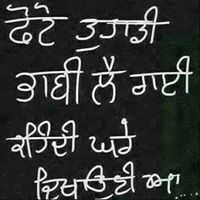 ਫੋਟੋ ਤੁਹਾਡੀ
ਭਾਬੀ ਲੈ ਗਈ
ਕਹਿੰਦੀ ਘਰੇ
ਦਿਖਾਉਣੀ ਆ...